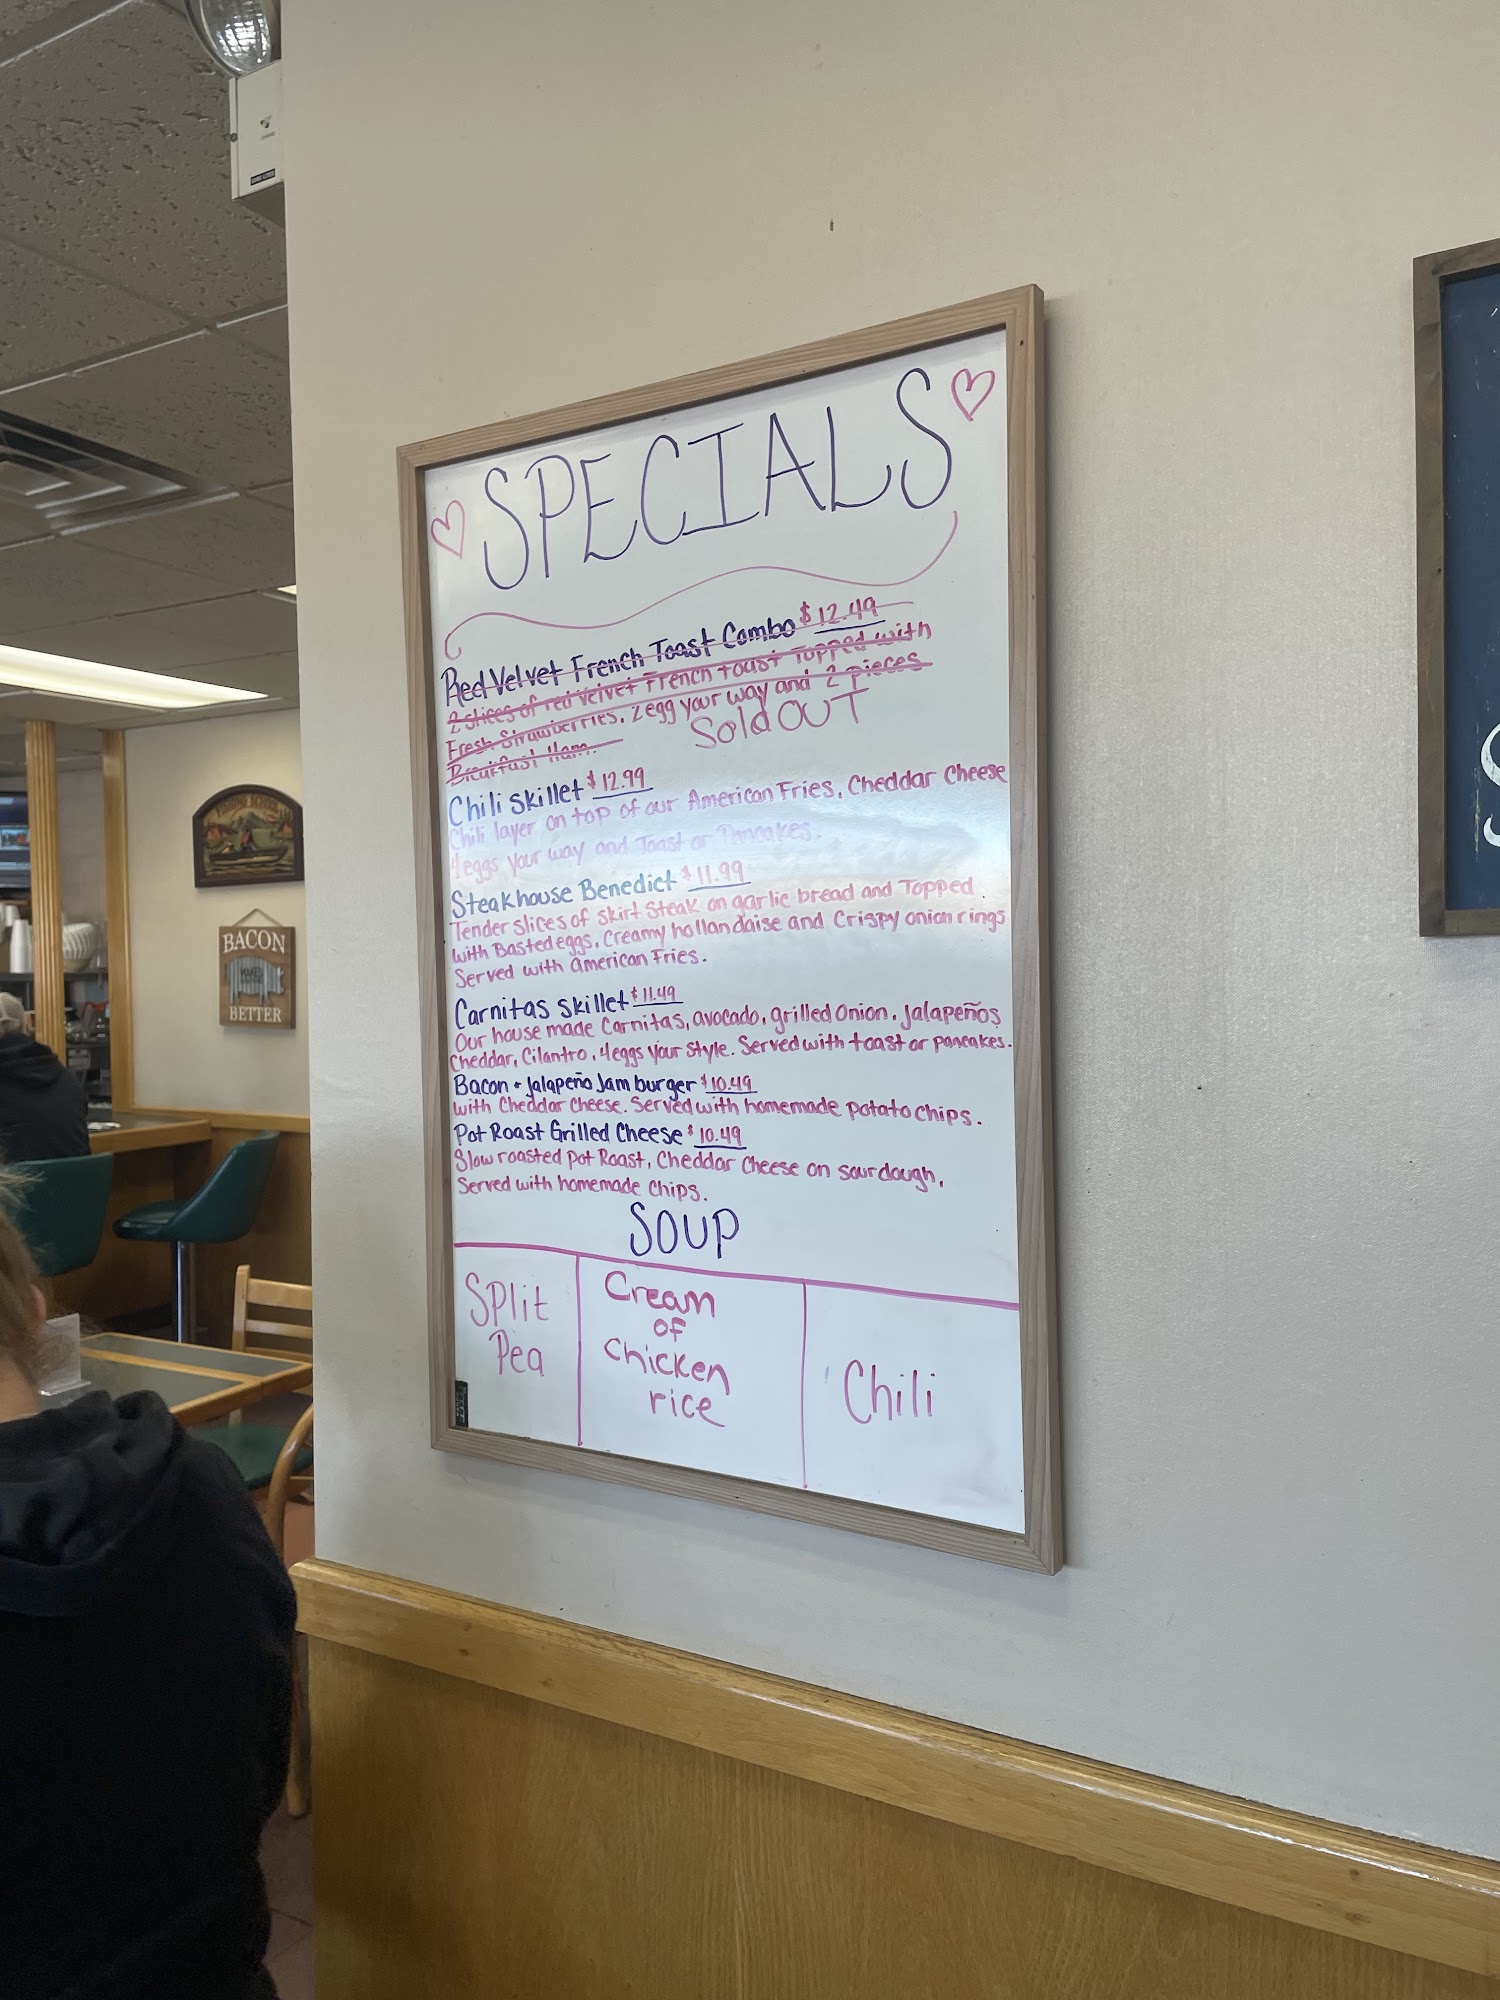 SPECIALS
Red Velvet French Toast Combo $12.49
2 slices of red velvet French toast Topped with
Fresh Strawberries, 2 egg your way and 2 pieces
Breakfast Ham.
Sold OUT
Chili Skillet $12.99
Chili layer on top of our American Fries, Cheddar Cheese
4 eggs your way and Toast or Pancakes.
Steakhouse Benedict $11.99
Tender slices of skirt steak on garlic bread and Topped
with Basted eggs, Creamy hollandaise and Crispy onion rings
Served with american Fries.
Carnitas Skillet $11.49
Our house made Carnitas, avocado, grilled onion, Jalapeños
Cheddar, Cilantro, 4 eggs your style. Served with toast or pancakes.
Bacon + Jalapeño Jam burger $10.49
with Cheddar Cheese. Served with homemade potato chips.
Pot Roast Grilled Cheese $10.49
Slow roasted Pot Roast, Cheddar Cheese on sourdough,
Served with homemade chips.
SOUP
Split
Pea
Cream
of
Chicken
rice
Chili
BACON
MAKES
BETTER